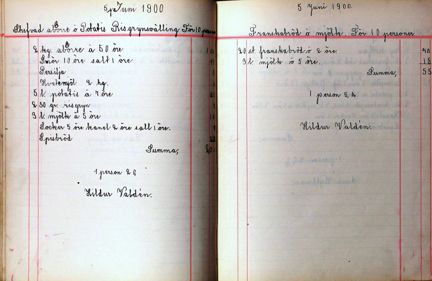 Juni 1900
Stufvad abbore o Potatis Risgrynsvälling För 10
2 kg. abbore à 50 öre
Smör 10 öre salt 1 öre
Persilja
Hvetemjöl 2 kg.
5 l. potatis à 4 öre
2 30 gr. risgryn
3 l. mjölk à 5 öre
Socker 5 öre kanel 2 öre salt 1 öre.
Spisbröd
Summa,
1 person 2
Hildur Valdén.
5 Juni 1900.
Franskabröd o mjölk. För 10 personer
20 st franskabröd à 2 öre. 40
3 l. mjölk à 5 öre. 15
Summa, 55
1 person
Hildur Valdén.